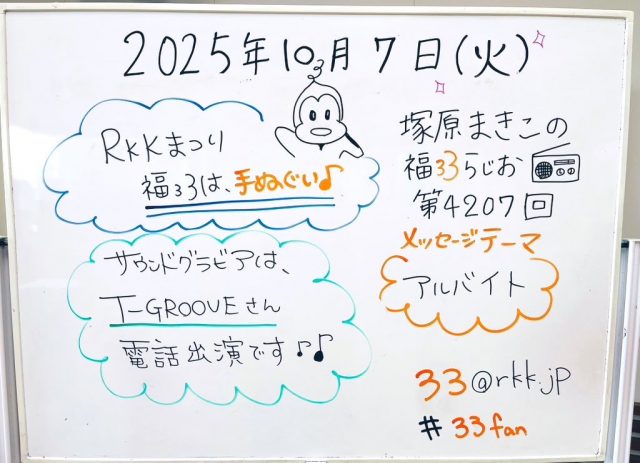 2025年10月7日(火)
RKKまつり
福33は、手ぬぐい♪
サウンドグラビアは、
T-GROOVEさん
電話出演です♪♪
塚原まきこの
福33らじお
第4207回
メッセージテーマ
アルバイト
33@rkk.jp
#33fan